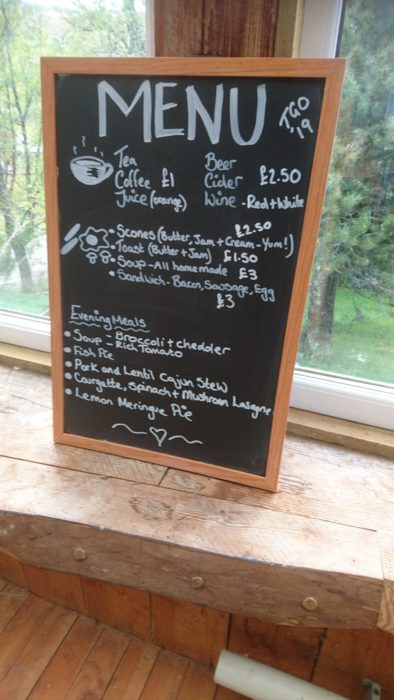 MENU
TGO '19
Tea
Coffee £1
Juice (orange)
Beer
Cider £2.50
Wine - Red + White
• Scones (Butter, Jam + Cream - Yum!) £2.50
• Toast (Butter + Jam) £1.50
• Soup - All homemade £3
• Sandwich - Bacon, Sausage, Egg
£3
Evening Meals
• Soup - Broccoli + cheddar
- Rich Tomato
• Fish Pie
• Pork and Lentil Cajun Stew
• Courgette, Spinach + Mushroom Lasagne
• Lemon Meringue Pie